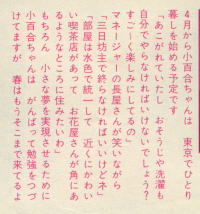 4月から小百合ちゃんは　東京でひとり
暮しを始める予定です
「あこがれていたし　おそうじや洗濯も
自分でやらなければいけないでしょう？
すごく楽しみにしているの」
マネージャーの長屋さんが笑いながら
「三日坊主で終らなければいいけどネ」
「部屋は水色で統一して　近くにかわい
い喫茶店があって　お花屋さんが角にあ
るようなところに住みたいわ」
もちろん　小さな夢を実現させるために
小百合ちゃんは　がんばって勉強をつづ
けてますが　春はもうそこまで来てるよ